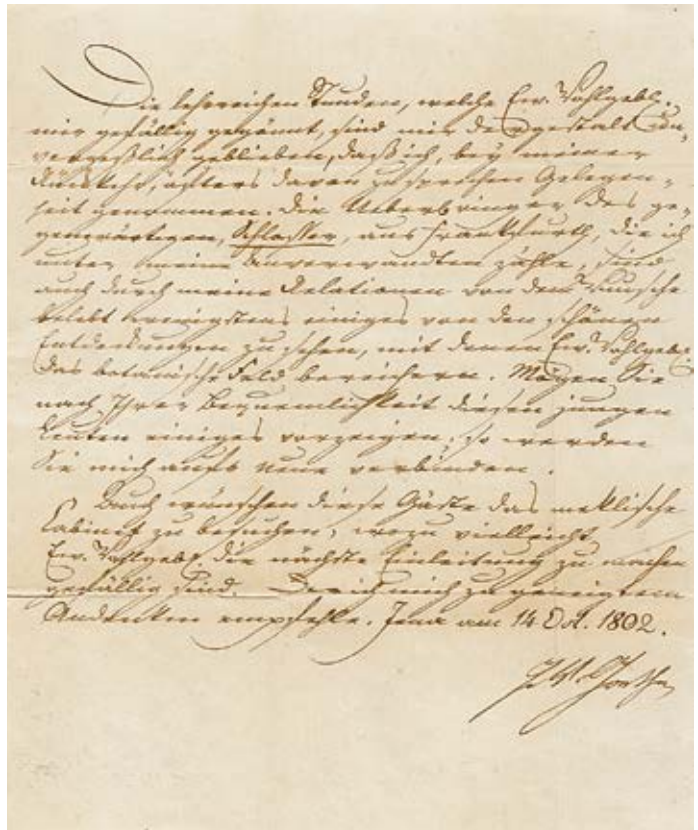 Die lehrreichen Stunden, welche Ew. Wohlgebl.
mir gefällig gegönnt, sind mir dergestalt un„
vergeßlich geblieben, daß ich, bey meiner
Rückkehr, öfters davon zu sprechen Gelegen„
heit genommen. Die Ueberbringer des ge„
genwärtigen, Schlosser, aus Franckfurth, die ich
unter meine Anverwandten zähle, sind
auch durch meine Relationen von dem Wunsche
belebt wenigstens einiges von den schönen
Entdeckungen zu sehen, mit denen Ew. Wohlgebl.
das botanische Feld bereichern. Mögen Sie
nach Ihrer Bequemlichkeit diesen jungen
Leuten einiges vorzeigen; so werden
Sie mich aufs neue verbinden.
Auch wünschen diese Gäste das meklische
Cabinet zu besuchen, wozu vielleicht
Ew. Wohlgebl. die nächste Einleitung zu machen
gefällig sind. Der ich mich zu geneigtem
Andenken empfehle. Jena am 14 Oct. 1802.
JWGoethe